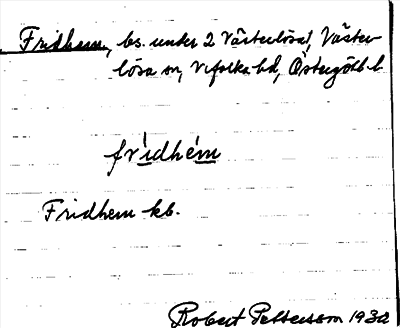 Fridhem, bs. under 2 Västerlösa, Väster-
lösa sn, Vifolka hd, Östergötl. l.
frìdhém
Fridhem kb.
Robert Pettersson 1932